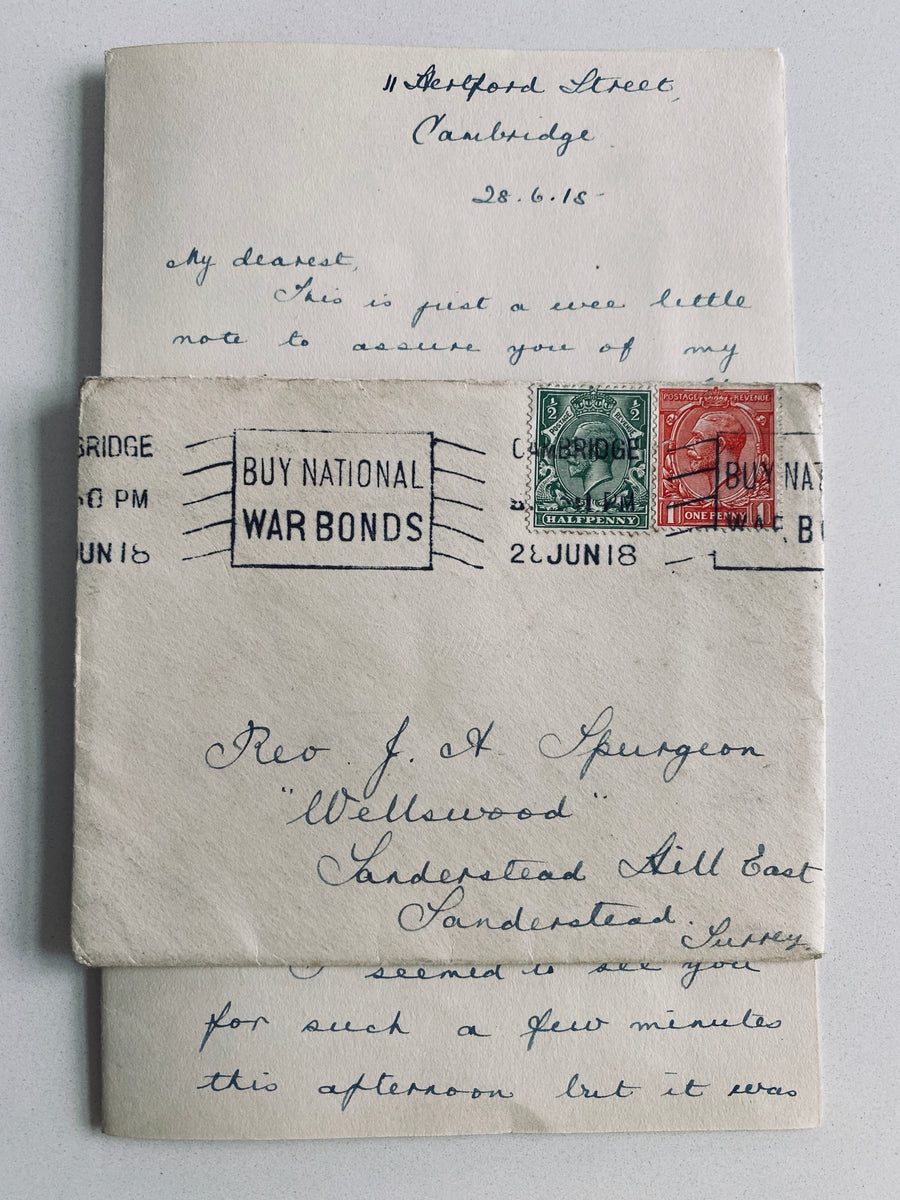 11 Hertford Street,
Cambridge
28.6.18
My dearest,
This is just a wee little
note to assure you of my
BRIDGE
0 PM
JUN 18
BUY NATIONAL
WAR BONDS
CAMBRIDGE
PM
28 JUN 18
1/2 1/2
POSTAGE REVENUE
HALFPENNY
POSTAGE REVENUE
1 ONE PENNY 1
BUY NAT
WAR BO
Rev. J. A. Spurgeon,
"Wellswood"
Sanderstead Hill East
Sanderstead.
Surrey.
I seemed to see you
for such a few minutes
this afternoon but it was